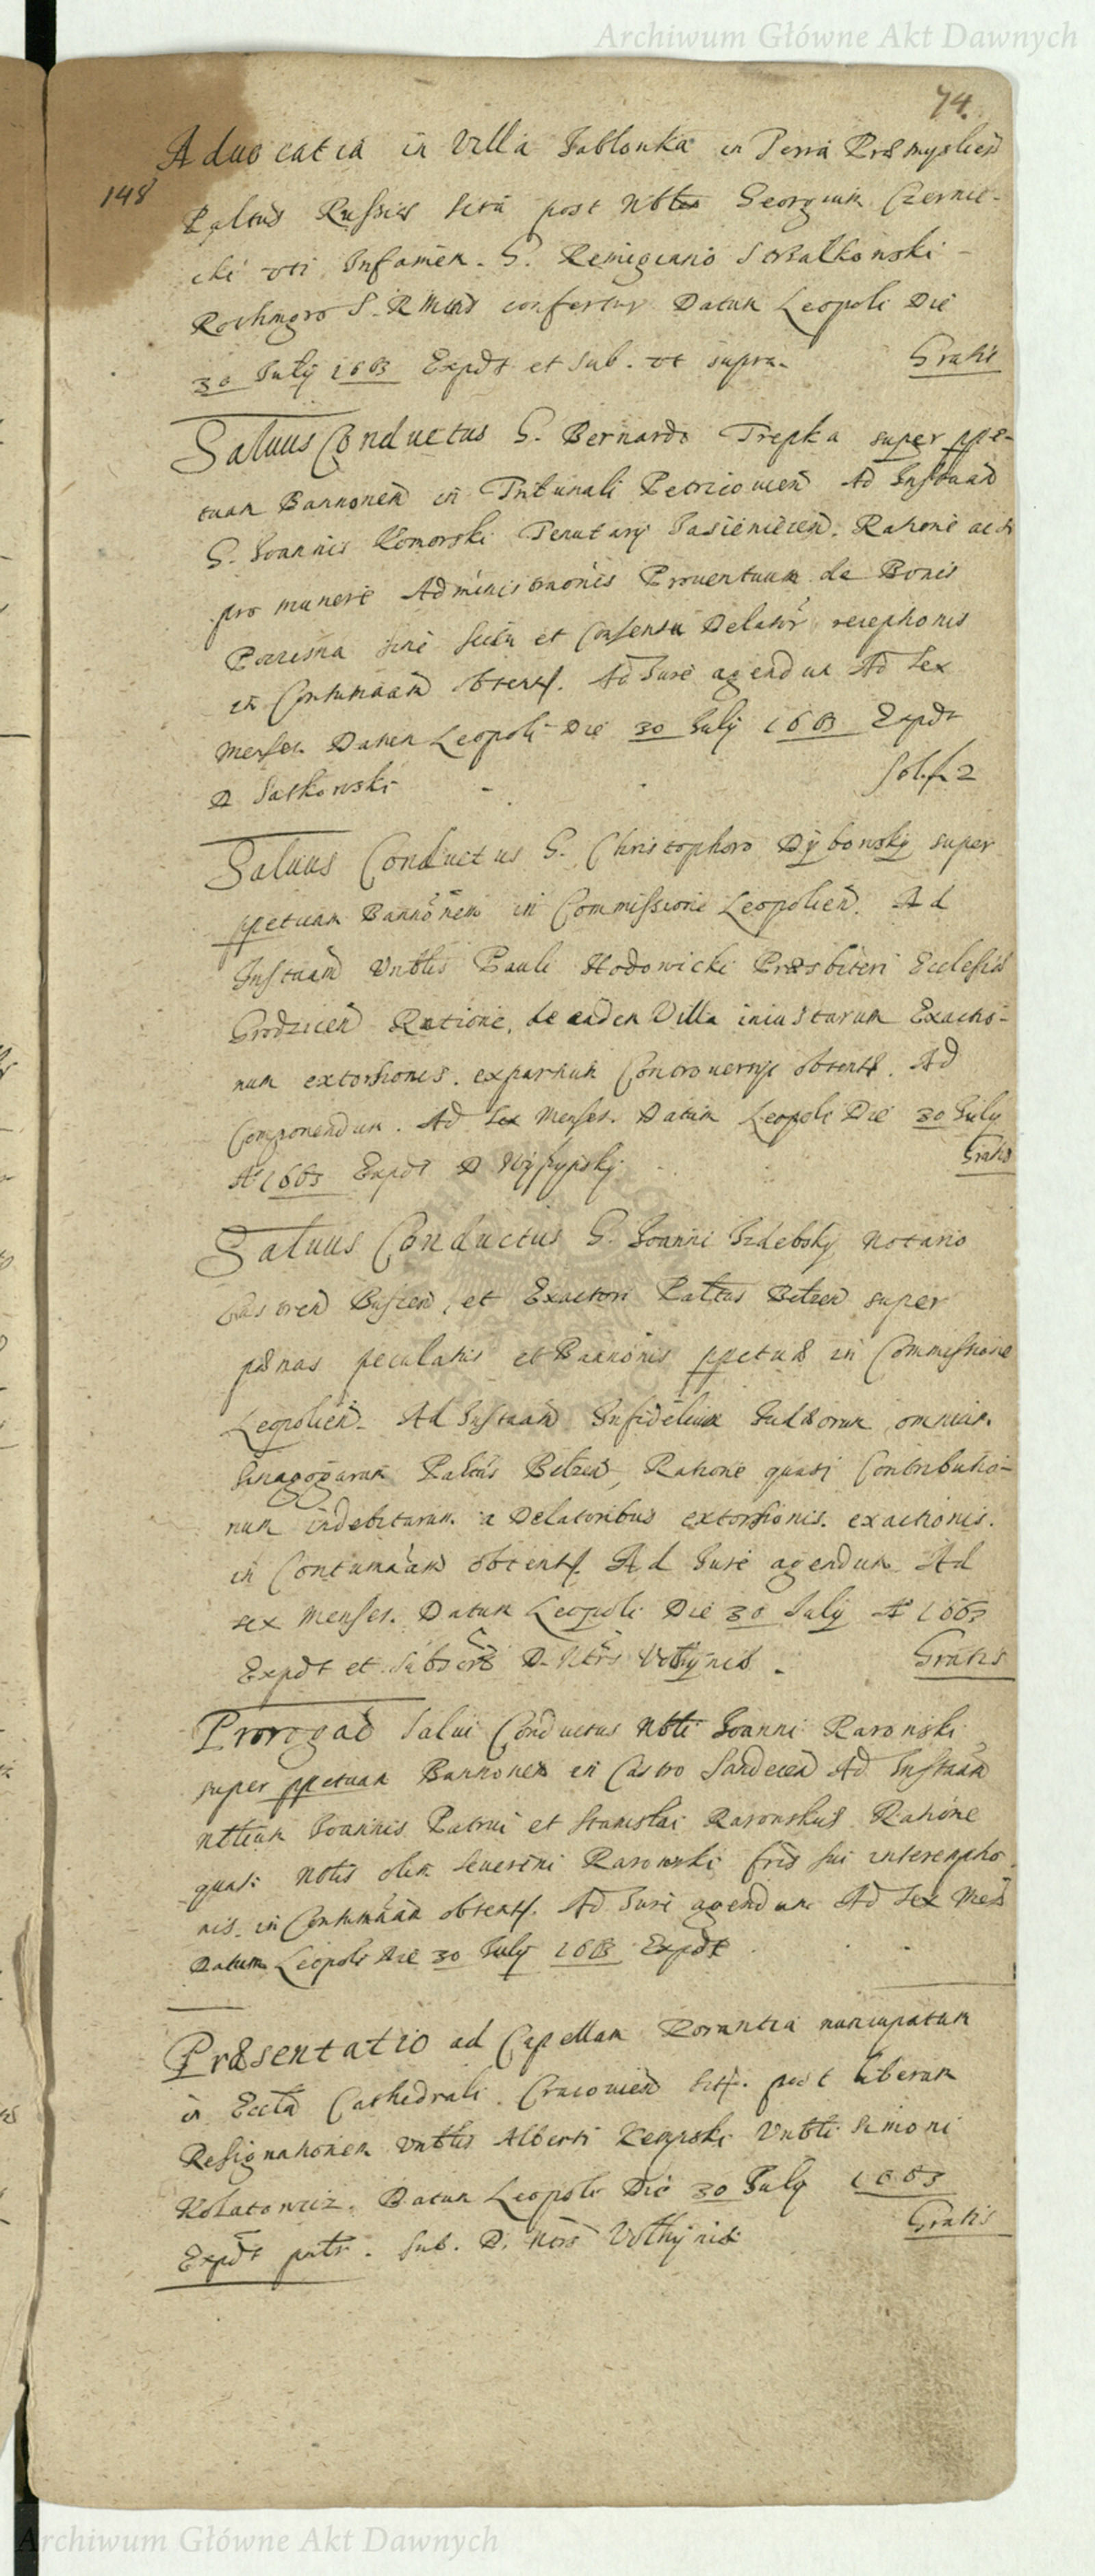 Archiwum Główne Akt Dawnych
74.
Aduocatia in Villa Jablonka in Terra Præmyslien
148
Paltus Russiæ sita post Nbtem Georgium Czernie-
cki vti Infamem. G. Remigiano Strzałkowski
Rothmgro S. R. Mttis confertur Datum Leopoli Die
30 July 1663 Expdt et Sub. vt supra. Gratis
Saluus Conductus G. Bernardo Trepka super ppe-
tuam Bannonem in Tribunali Petricouien Ad Instaam
G. Joannis Komorski Tenutarij Jasienicen. Ratione acti
pro munere Administraonis Prouentuum de Bonis
sine scitu et Consensu Delator receptionis
in Contumaam obtent. Ad Jure agendum Ad sex
Menses. Datum Leopoli Die 30 July 1663 Expdt
D Satkowski Sol. f. 2
Saluus Conductus G. Christophoro Dybowsky super
ppetuam Bannonem in Commissione Leopolien. Ad
Instaam Vnblis Pauli Hodowicki Præsbiteri Ecclesiæ
Grodzicen Ratione, de eadem Villa iniustarum Exactio-
num extorsionis. ex partium Controuersijs obtent. Ad
Componendum. Ad Sex Menses. Datum Leopoli Die 30 July
Ao 1663 Expdt D Gratis
Saluus Conductus G. Joanni Izdebsky Notario
Castren Buscen, et Exactori Paltus Belzen super
pænas peculatus et Bannonis ppetuæ in Commissione
Leopolien. Ad Instaam Infidelium Judæorum omnium
Sinagogarum Paltus Belzen, Ratione quasi Contributio-
num indebitarum a Delatoribus extorsionis. exactionis.
in Contumaam obtent. Ad Jure agendum Ad
sex Menses. Datum Leopoli Die 30 July Ao 1663
Expdt et Subscrs D. Ntrs Volhyniæ. Gratis
Prorogao Salui Conductus Nbli Joanni Rarowski
super ppetuam Bannonem in Castro Sandecen Ad Instaam
Nblium Joannis Patrui et Stanislai Rarowskich Ratione
quasi Nblis olim Seuerini Rarowski fris sui interemptio
nis. in Contumaam obtent. Ad Jure agendum Ad Sex Mens
Datum Leopoli Die 30 July 1663 Expdt
Præsentatio ad Capellam Rorantia nuncupatam
in Eccla Cathedrali Cracouien sit. post liberam
Resignationem Vnblis Alberti Kempski Vnbli Simoni
Kolatowicz. Datum Leopoli Die 30 July 1663
Expdt putr. Sub. D. Ntrs Volhyniæ Gratis
Archiwum Główne Akt Dawnych